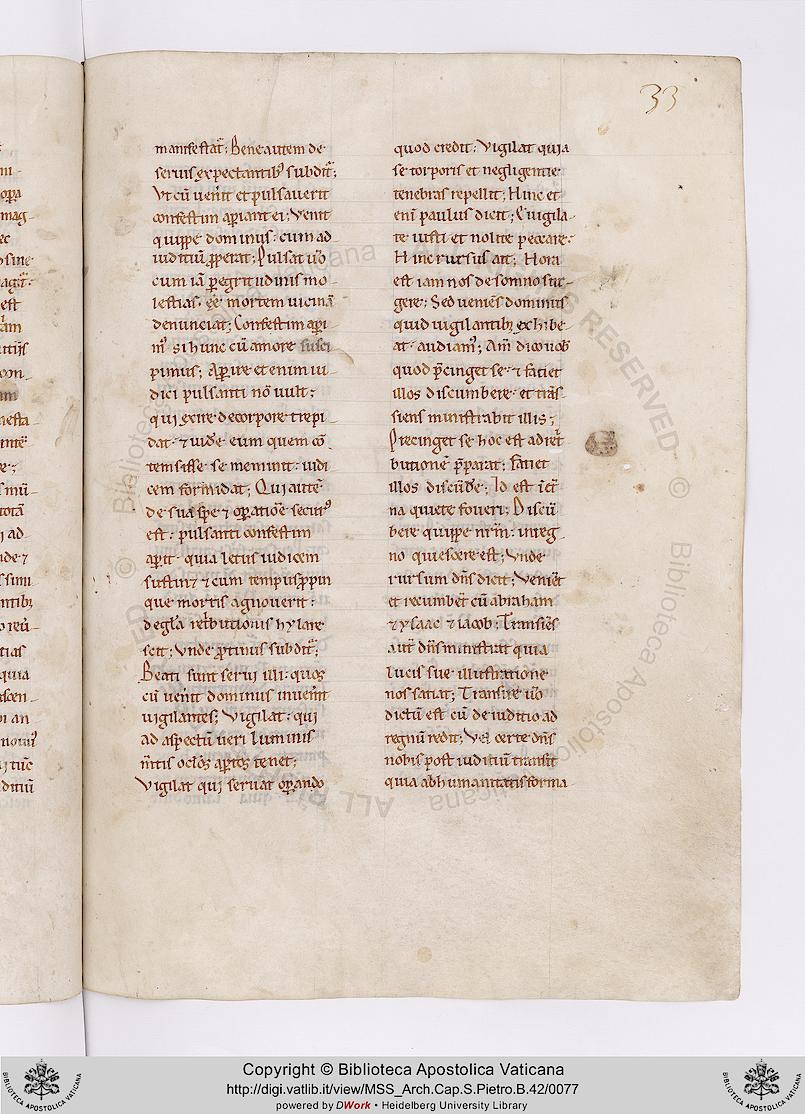 33
manifestat᷑; Bene autem de
seruis expectantib᷒ subdit᷑;
Vt cū uen̄it et pulsauerit
confestim ap̱iant ei; Venit
quippe dominus: cum ad
iuditiū ꝓperat; Pulsat ū̊o
cum iā p̱ egritudinis mo-
lestias. ee᷑ mortem uicinā
denunciat; Confestim ap̱i-
m᷒ si hunc cū amore susci
pimus; Aperire et enim iu-
dici pulsanti nō uult;
qui exire de corpore trepi-
dat. ⁊ uidēe eum quem cō-
temsisse se meminit: iudi
cem formidat; Qui autē
de sua spe ⁊ op̱atio̅e secur᷒
est: pulsanti confestim
ap̱it. quia letus iudicem
sustin& ⁊ cum tempus ꝓpin
que mortis agnouerit:
de gl̄a ret̄butionis hylare
scit; vnde ꝓtinus subdit᷑;
Beati sunt serui illi: quos
cū uen̄it dominus inuen̄it
uigilantes; Vigilat: qui
ad aspectum ueri luminis
m̄tis oclos ap̱tos tenet;
Vigilat qui seruat op̱ando
quod credit; Vigilat quia
se torporis et negligentie
tenebras repellit; Hinc et
enī paulus dicit; Euigila-
te iusti et nolite peccare;
Hinc rursus ait; Hora
est iam nos de somno sur-
gere; Sed ueniēs dominus
quid uigilantib; exhibe-
at. audiam᷒; Am̄ dico uob̄
quod p̄cinget se. ⁊ faciet
illos discumbere. et trās-
siens ministrabit illis;
Precinget se hoc est ad ret̄
butionē p̄parat; Faciet
illos discūb̄e; Id est ī et̄
na quiete foueri; Discū-
bere quippe nr̄m: in reg-
no quiescere est; vnde
rursum dn̄s dicit; Veniēt
et recumb̄et cū abraham
& ysaac & iacob; Transiēs
aut̄ dn̄s ministrat quia
lucis sue illustratione
nos satiat; Transire ū̊o
dictū est cū de iuditio ad
regnū redit; Vel certe dn̄s
nobis post iuditiū transit
quia ab humanitatis forma
Copyright © Biblioteca Apostolica Vaticana
http://digi.vatlib.it/view/MSS_Arch.Cap.S.Pietro.B.42/0077
powered by DWork • Heidelberg University Library